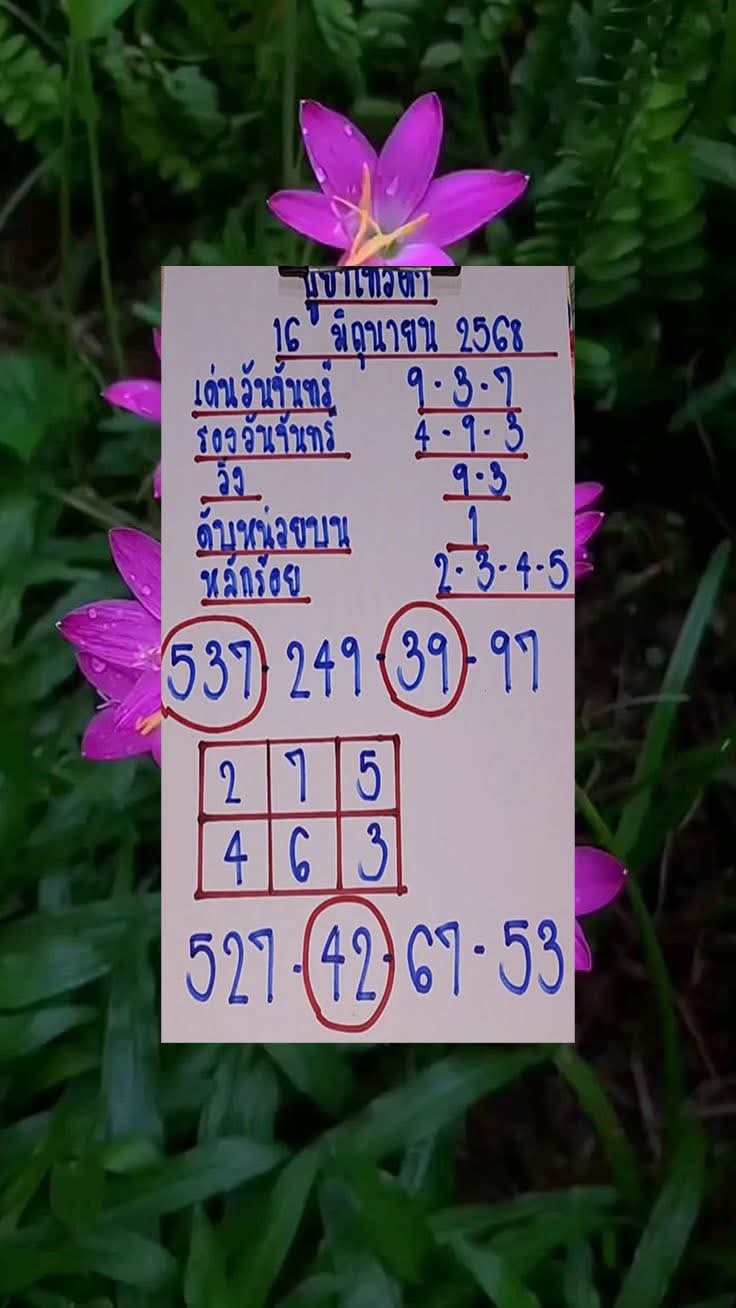 16 มิถุนายน 2568
เด่นวันจันทร์ 9-3-7
รองวันจันทร์ 4-9-3
วิ่ง 9-3
ดับหน่วยบน 1
หลักร้อย 2-3-4-5
537-249-39-97
2 7 5
4 6 3
527-42-67-53